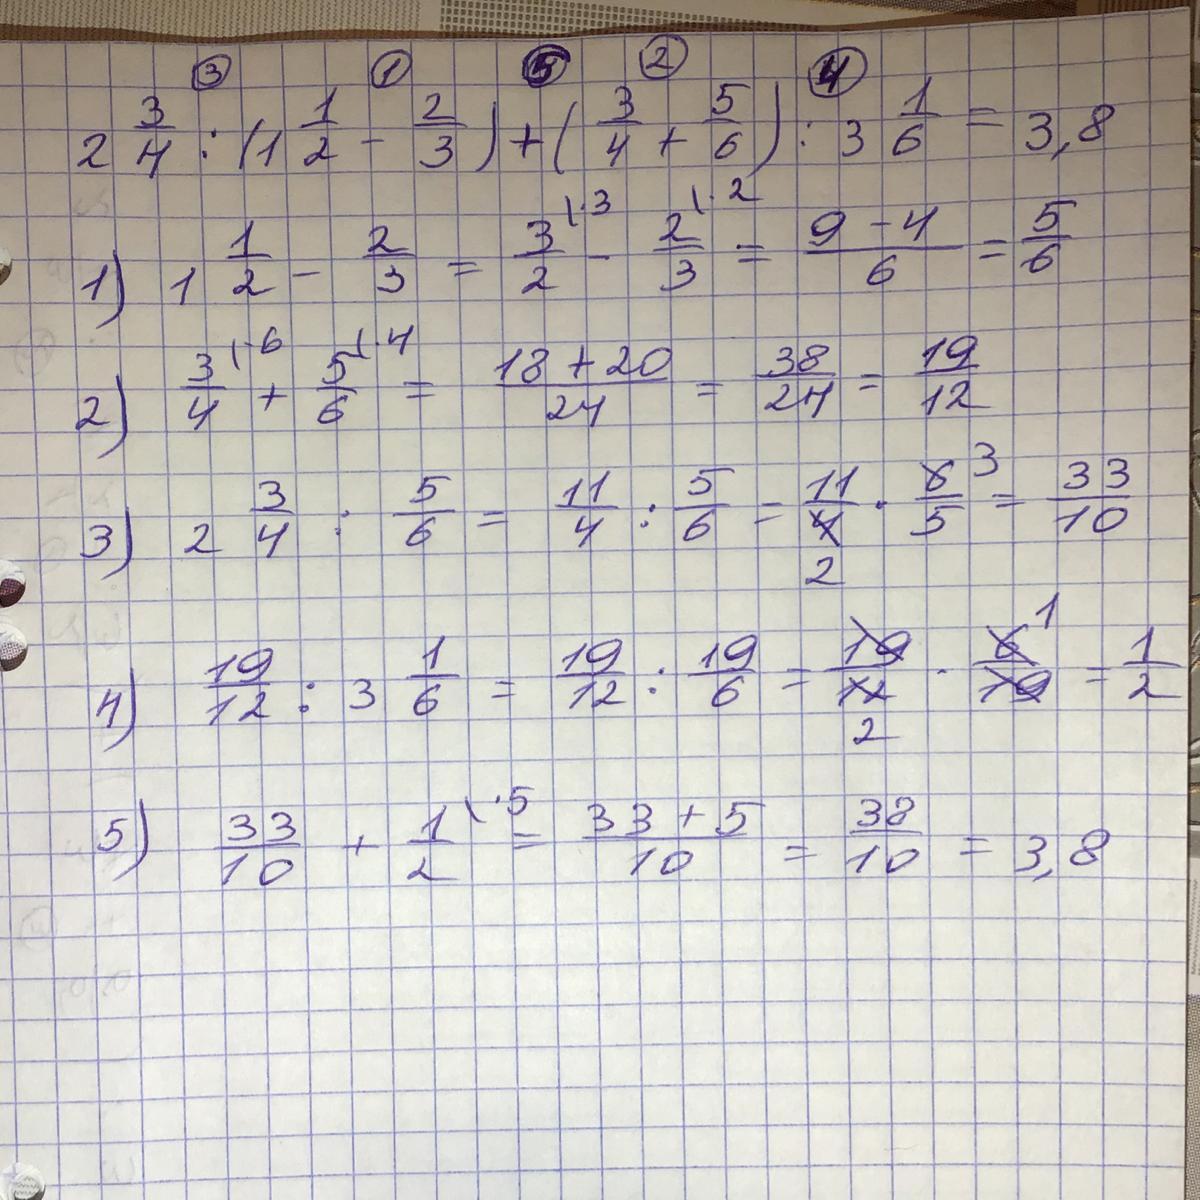 ③ ① ⑤ ② ④
2 3/4 : (1 1/2 - 2/3) + (3/4 + 5/6) : 3 1/6 = 3,8
1) 1 1/2 - 2/3 = 3/2 \·3 - 2/3 \·2 = (9 - 4)/6 = 5/6
2) 3/4 \·6 + 5/6 \·4 = (18 + 20)/24 = 38/24 = 19/12
3) 2 3/4 : 5/6 = 11/4 : 5/6 = 11/4 2 · 6 3/5 = 33/10
4) 19/12 : 3 1/6 = 19/12 : 19/6 = 19/12 2 · 6 1/19 = 1/2
5) 33/10 + 1/2 \·5 = (33 + 5)/10 = 38/10 = 3,8